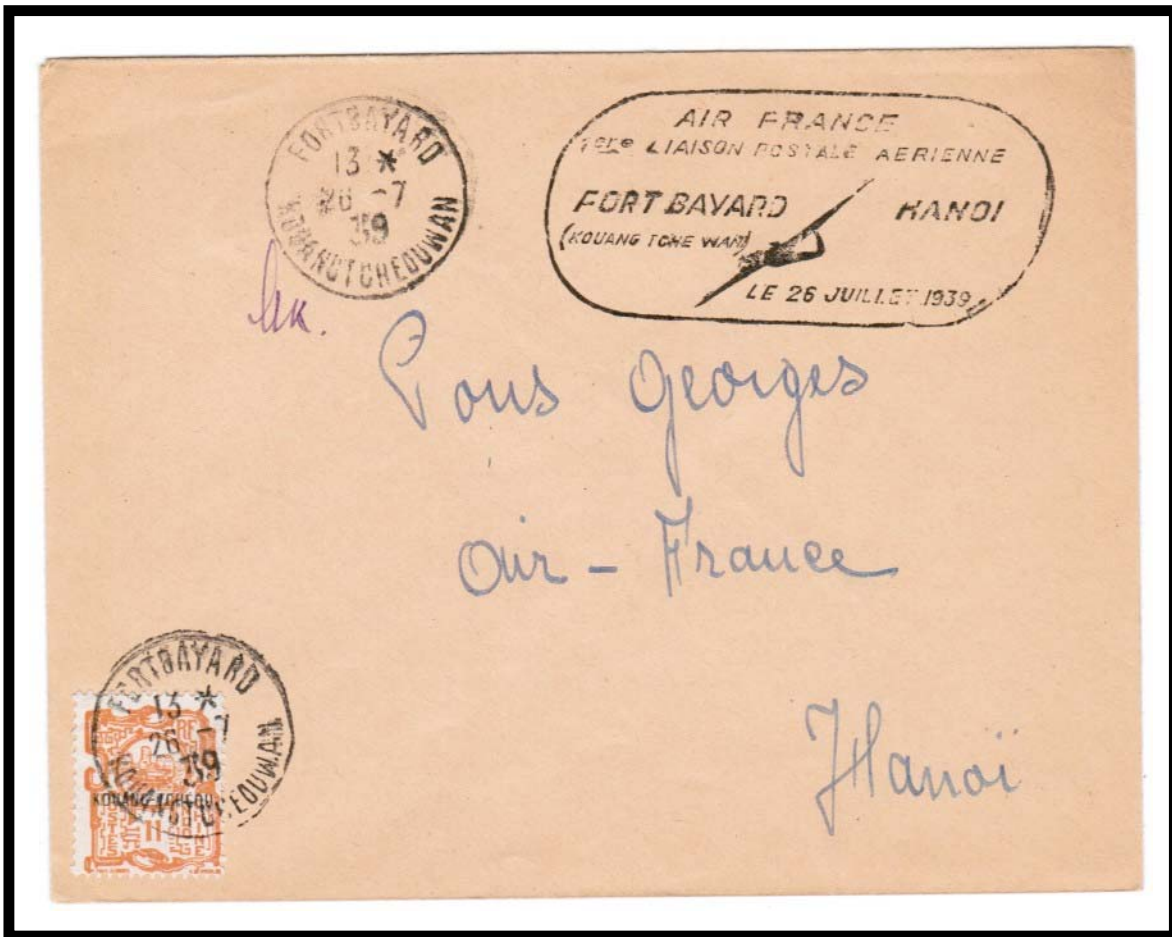 FORT BAYARD
13 *
26 -7
39
KOUANGTCHEOUWAN
AIR FRANCE
1ere LIAISON POSTALE AERIENNE
FORT BAYARD HANOI
(KOUANG TCHE WAN)
LE 26 JUILLET 1939
Pons Georges
Air - France
Hanoï
FORT BAYARD
13 *
26 -7
39
KOUANGTCHEOUWAN
RF
KOUANG-TCHEOU
POSTES